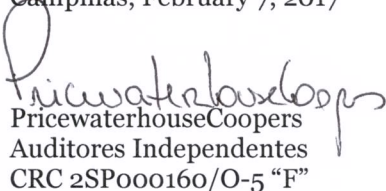 Campinas, February 7, 2017
PricewaterhouseCoopers
PricewaterhouseCoopers
Auditores Independentes
CRC 2SP000160/O-5 “F”